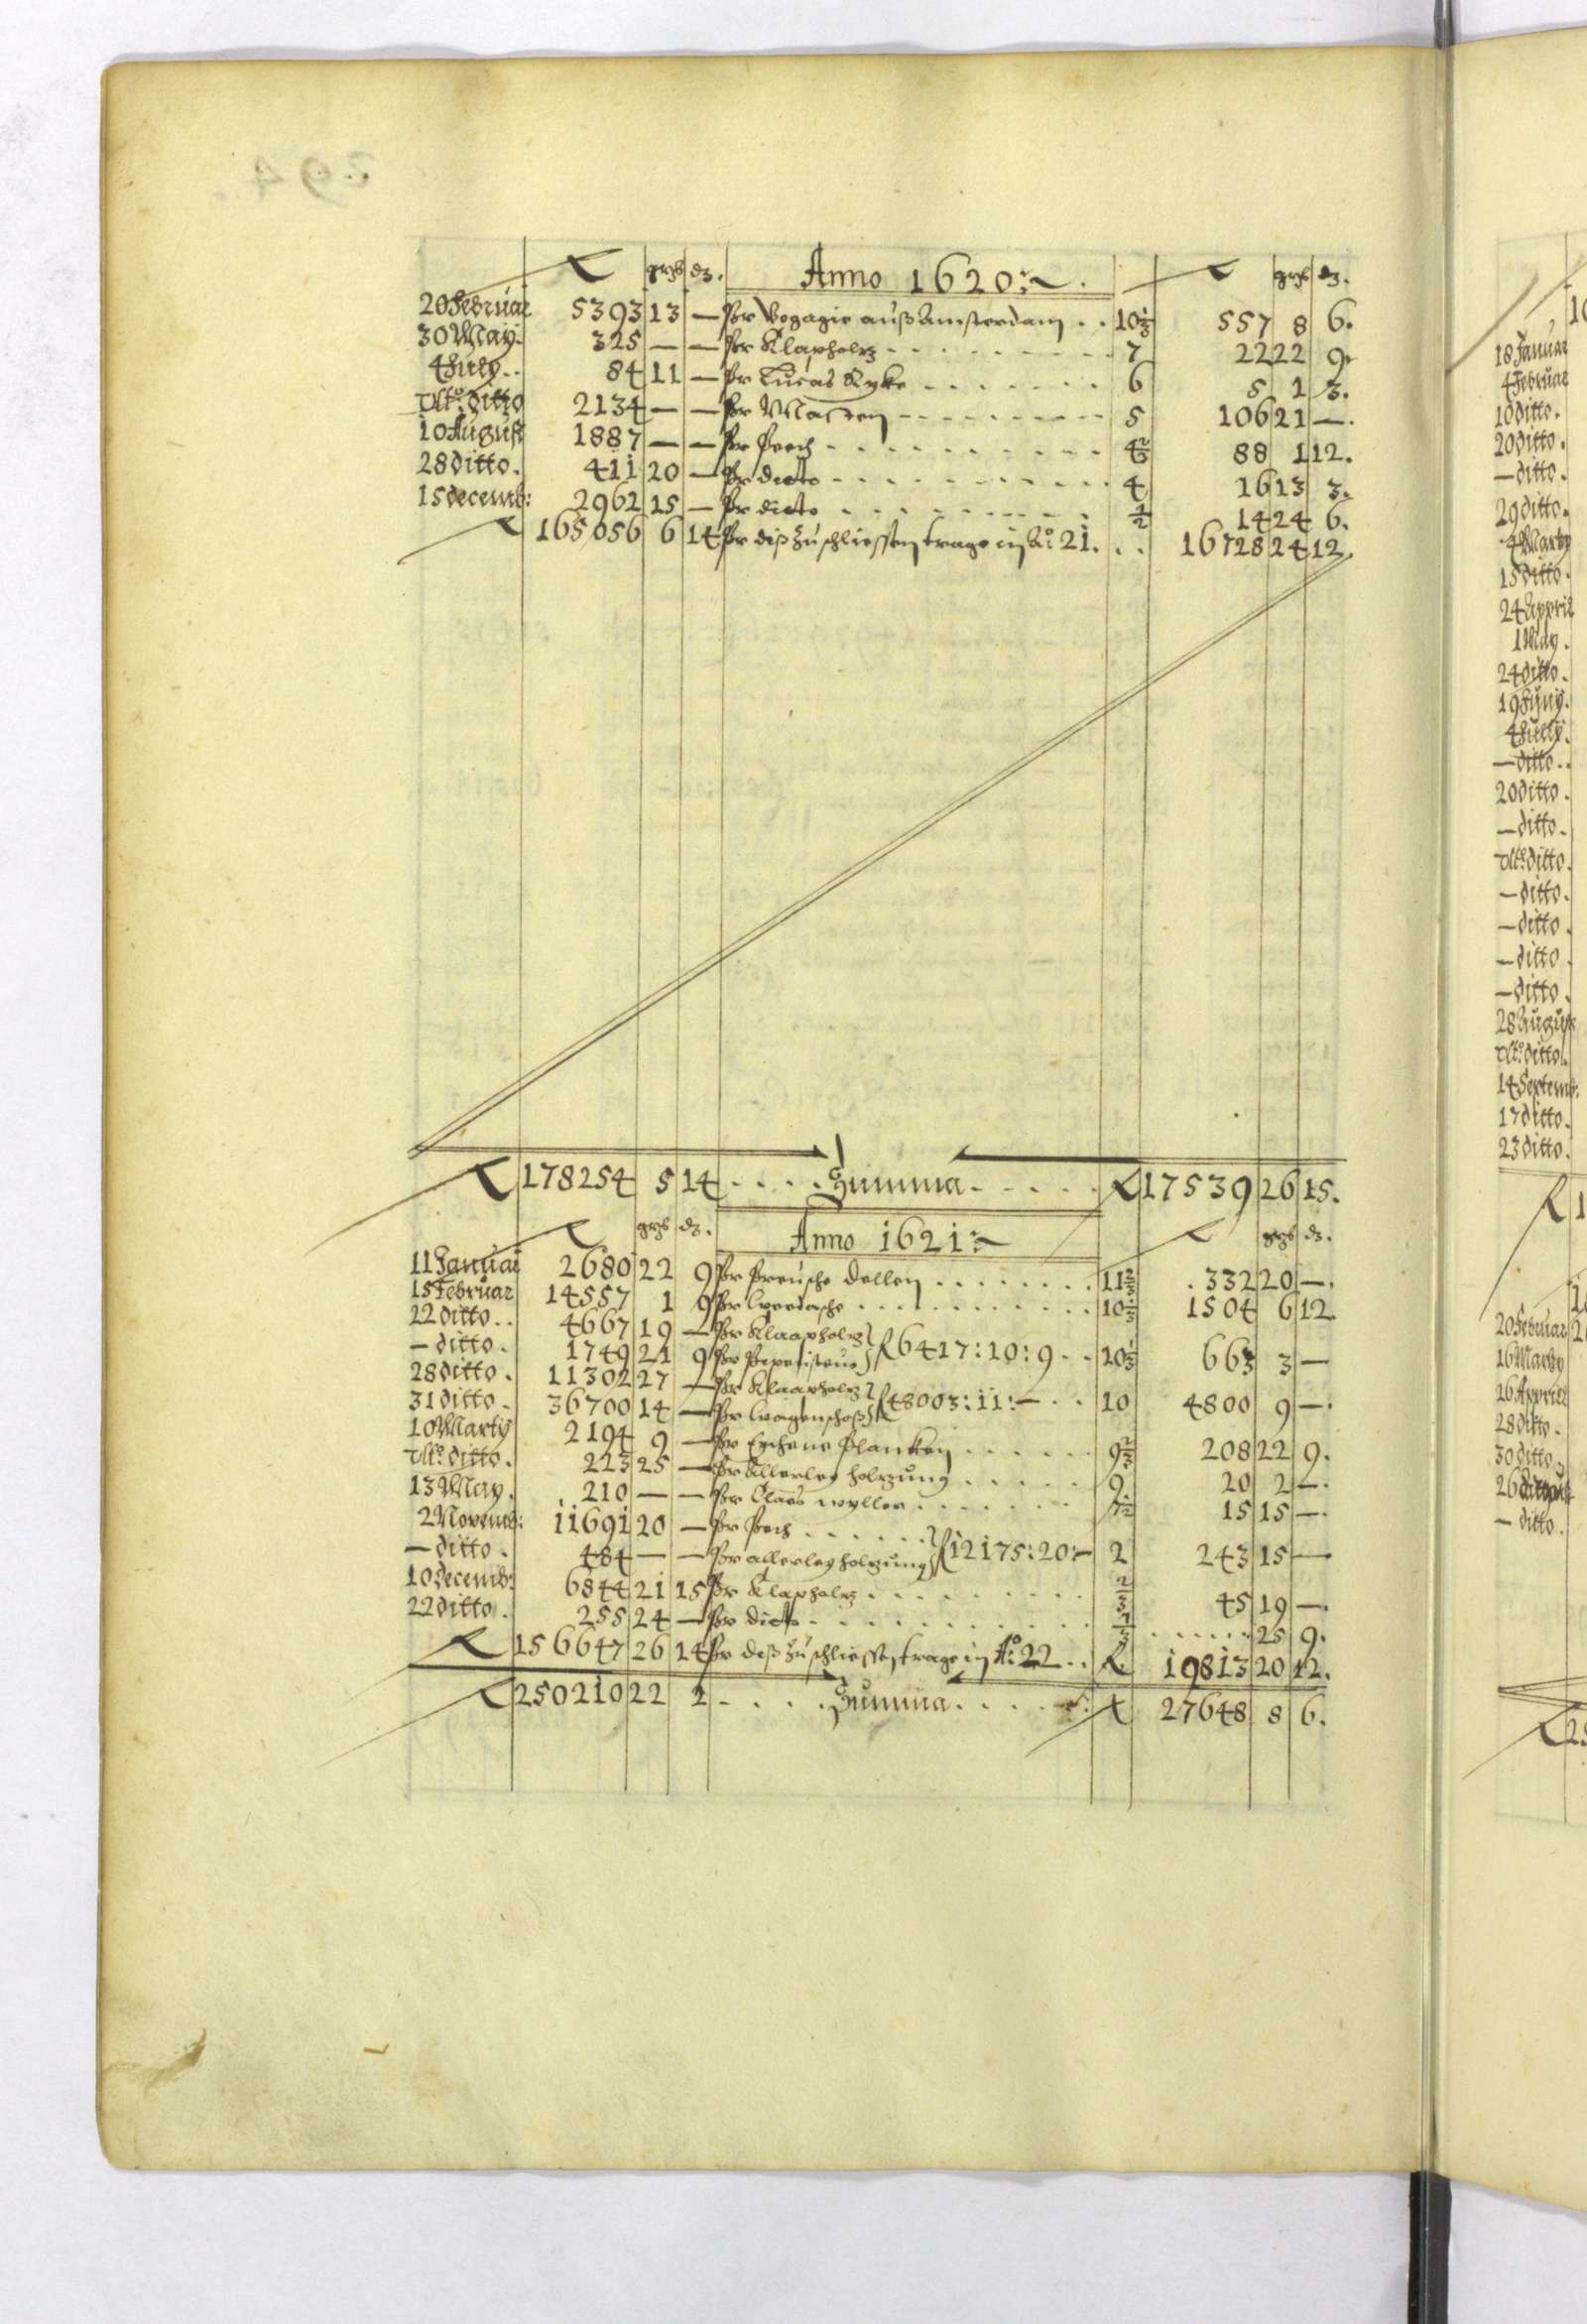 394.
grs dz. Anno 1620 :~. grs dz.
20 Februar 5393 13 — Pr Vogagie auß Amsterdam . . 10 1/3 557 8 6.
30 May. 325 — — Pr Klapholtz 7 22 22 9.
4 July . . 84 11 — Pr Lucas Ryke 6 5 1 3.
Ult.o ditto 2134 — — Pr Masten 5 106 21 —.
10 August 1887 — — Pr Pech 4 2/3 88 1 12.
28 ditto. 411 20 — Pr dicto 4 16 13 3.
15 decemb: 2962 15 — Pr dicto 1/2 14 24 6.
165056 6 14 Pr diß zu schliessen trage in Ao: 21. . . 16728 24 12.
178254 5 14 . . . . Summa . . . . . 17539 26 15.
grs dz. Anno 1621 :~ grs dz.
11 Januar 2680 22 9 Pr Preusche dellen 11 2/3 . 332 20 —.
15 Februar 14557 1 9 Pr 10 1/3 1504 6 12.
22 ditto . . 4667 19 — Pr Klaapholtz
— ditto. 1749 21 9 Pr 6417 : 10 : 9 . . 10 1/3 663 3 —
28 ditto. 11302 27 — Pr Klaapholtz
31 ditto. 36700 14 — Pr wagenschoß 48003 : 11 : — . . 10 4800 9 —.
10 Martij 2194 9 — Pr Eychene Plancken 9 2/3 208 22 9.
Ult.o ditto. 223 25 — Pr Allerley holtzung 9. 20 2 —.
13 May. 210 — — Pr Claes wyller 7 1/2 15 15 —.
2 Novemb: 11691 20 — Pr Pech
— ditto. 484 — — Pr allerley holtzung 12175 : 20 : — 2 243 15 —
10 decemb: 6844 21 15 Pr Klapholtz 2/3 45 19 —.
22 ditto. 255 24 — Pr dicto 25 9.
156647 26 14 Pr diß zu schliessen trage in Ao: 22 . . 19813 20 12.
250210 22 2 . . . . Summa . . . . 27648 8 6.
18 Januar
4 Februar
10 ditto.
20 ditto.
— ditto.
29 ditto.
4 Marty
15 ditto.
24 Appril
1 May.
24 ditto.
19 Juny.
4 July.
— ditto. .
20 ditto.
— ditto.
Ult.o ditto.
— ditto.
— ditto.
— ditto.
— ditto.
28 August
Ult.o ditto.
14 Septemb:
17 ditto.
23 ditto.
20 Februar
16 Marty
16 Appriel
28 ditto.
30 ditto.
— ditto.